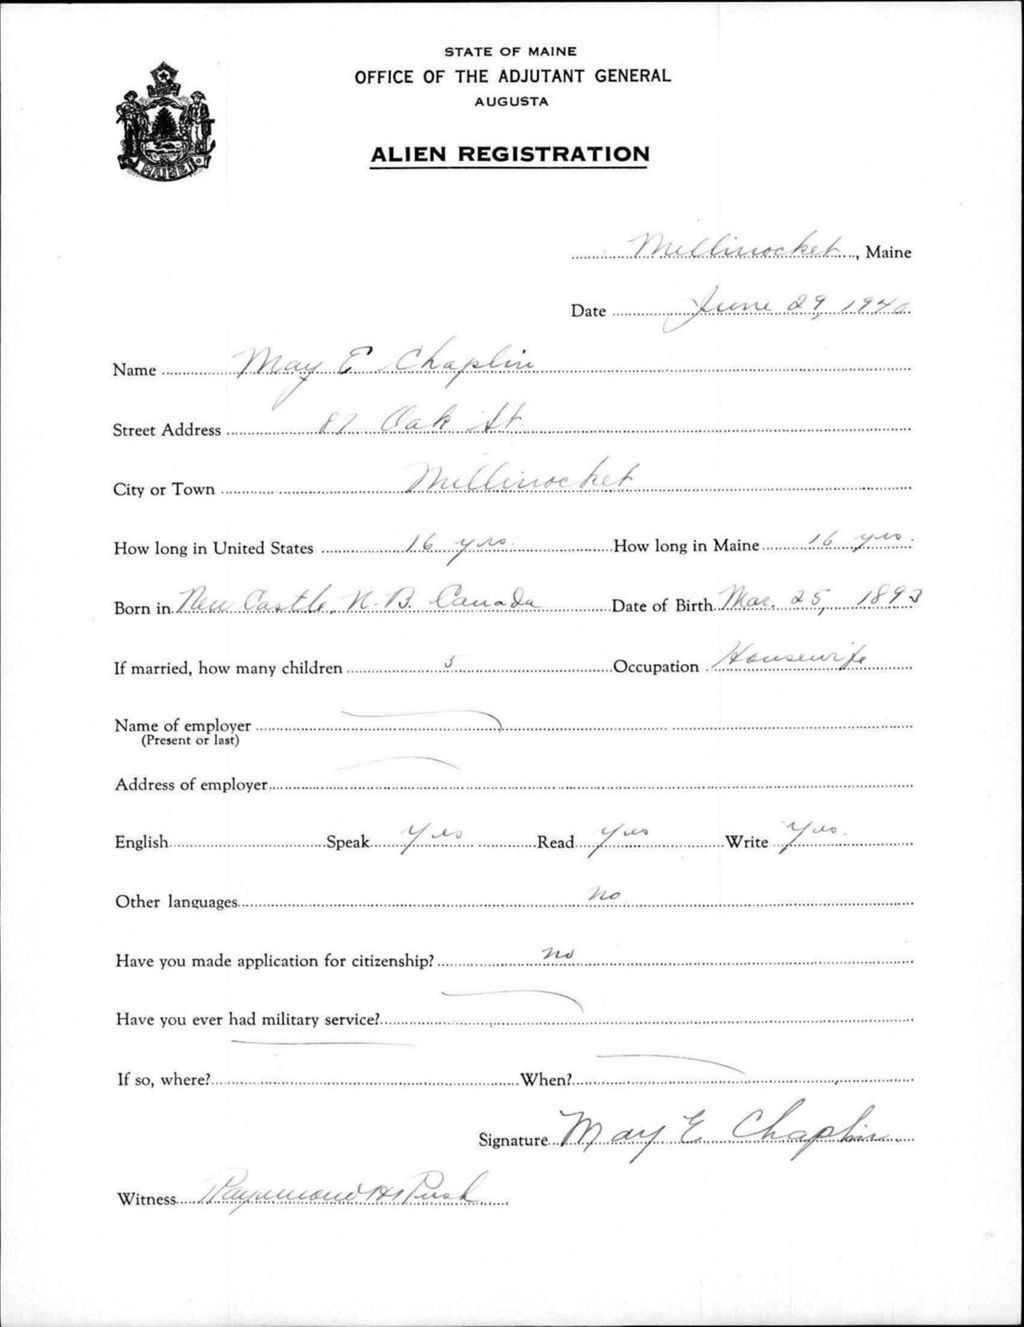 STATE OF MAINE
OFFICE OF THE ADJUTANT GENERAL
AUGUSTA
ALIEN REGISTRATION
MAINE
Millinocket, Maine
Date June 29, 1940
Name May E Chaplin
Street Address 87 Oak St
City or Town Millinocket
How long in United States 16 yrs. How long in Maine 16 yrs.
Born in New Castle, N.B. Canada Date of Birth Mar. 25, 1893
If married, how many children 5 Occupation Housewife
Name of employer
(Present or last)
Address of employer
English Speak Yes Read Yes Write Yes.
Other languages no
Have you made application for citizenship? no
Have you ever had military service?
If so, where? When?
Signature May E Chaplin
Witness Raymond H